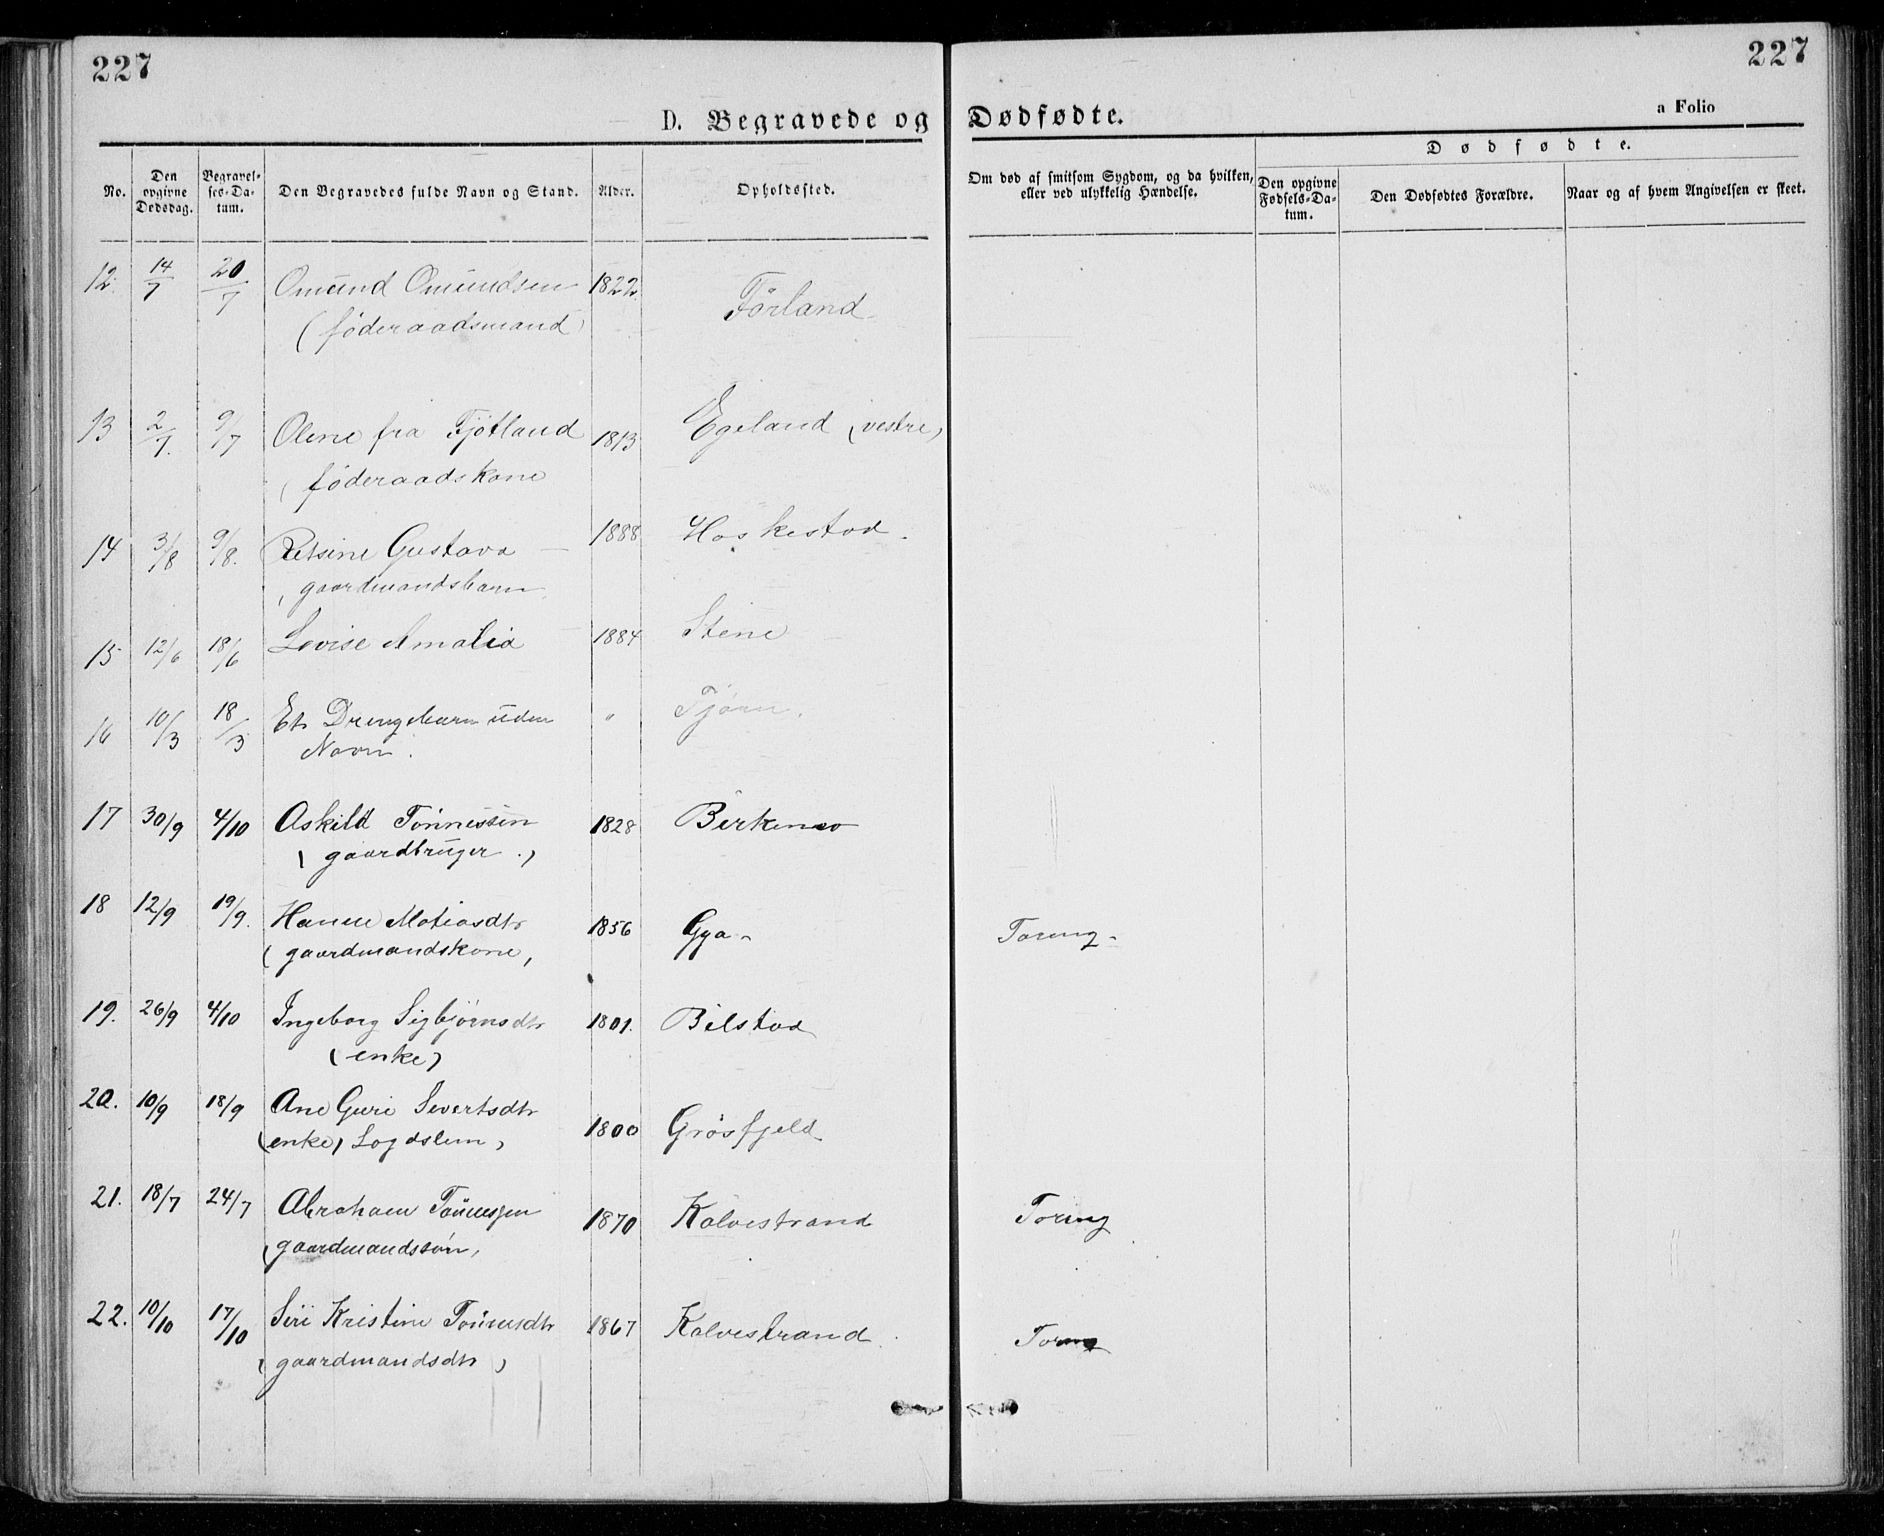 227
227
D. Begravede og Dødfødte.
a Folio
No.
Den opgivne Dødsdag.
Begravelses-Datum.
Den Begravedes fulde Navn og Stand.
Alder.
Opholdssted.
Om død af smitsom Sygdom, og da hvilken, eller ved ulykkelig Hændelse.
Dødfødte.
Den opgivne Fødsels-Datum.
Den Dødfødtes Forældre.
Naar og af hvem Angivelsen er skeet.
12. 14/7 20/7 Omund Omundsen 1822 Förland
(föderaadsmand)
13 2/7. 9/7 Olene fra Fjötland 1813 Egeland (vestre)
(föderaadskone
14 3/8 9/8. Petsine Gustava 1888 Haskestad.
(gaardmandsbarn
15 12/6 18/6 Lovise Amalia 1884 Stene
16 10/3 18/3 Et Drengebarn uden " Tjørn.
Navn.
17 30/9 4/10 Askild Tönnessen 1828 Birkemo
(gaardbruger.)
18 12/9 19/9. Hanne Matiasdtr 1856 Gya Tæring
(gaardmandskone,
19. 26/9 4/10 Ingeborg Sigbjørnsdtr 1801. Bilstad
(enke)
20. 10/9 18/9 Ane Guri Sivertsdtr 1800 Grösfjeld
(enke) Logdslem,
21. 18/7 24/7 Abraham Tönnessen 1870 Kalvestrand Tæring
(gaardmandssön,
22. 10/10 17/10 Siri Kristine Tönnesdtr 1867 Kalvestrand Tæring
(gaardmandsdtr)